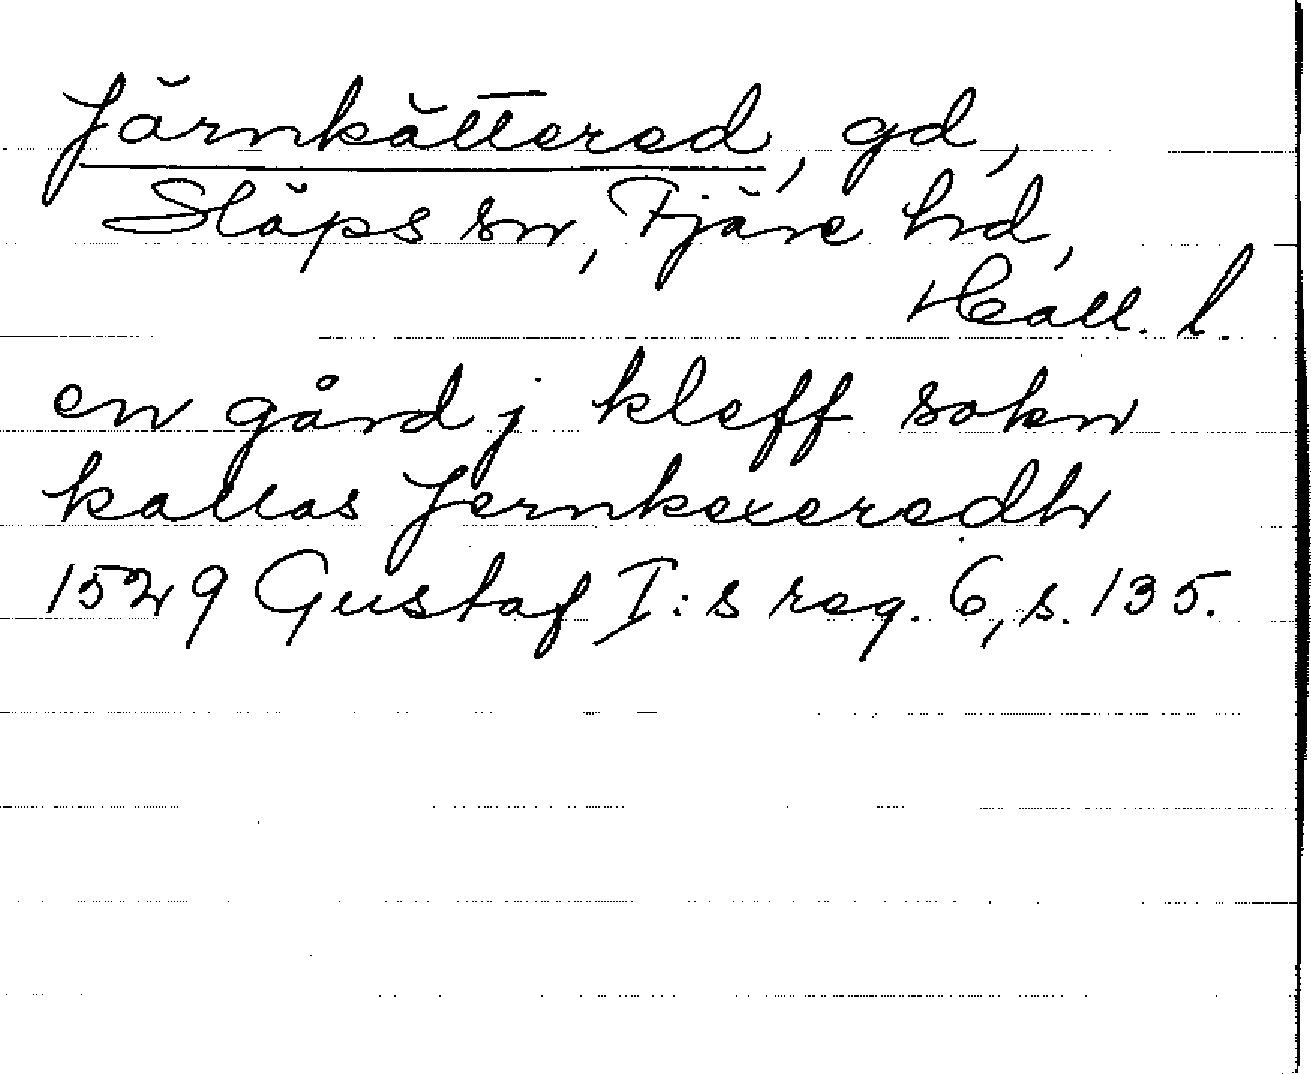 Järnkättered, gd,
Släps sn, Fjäre hd,
Hall. l.
en gård j kleff sokn
kallas Jernkexeredh
1529 Gustaf I:s reg. 6, s. 135.